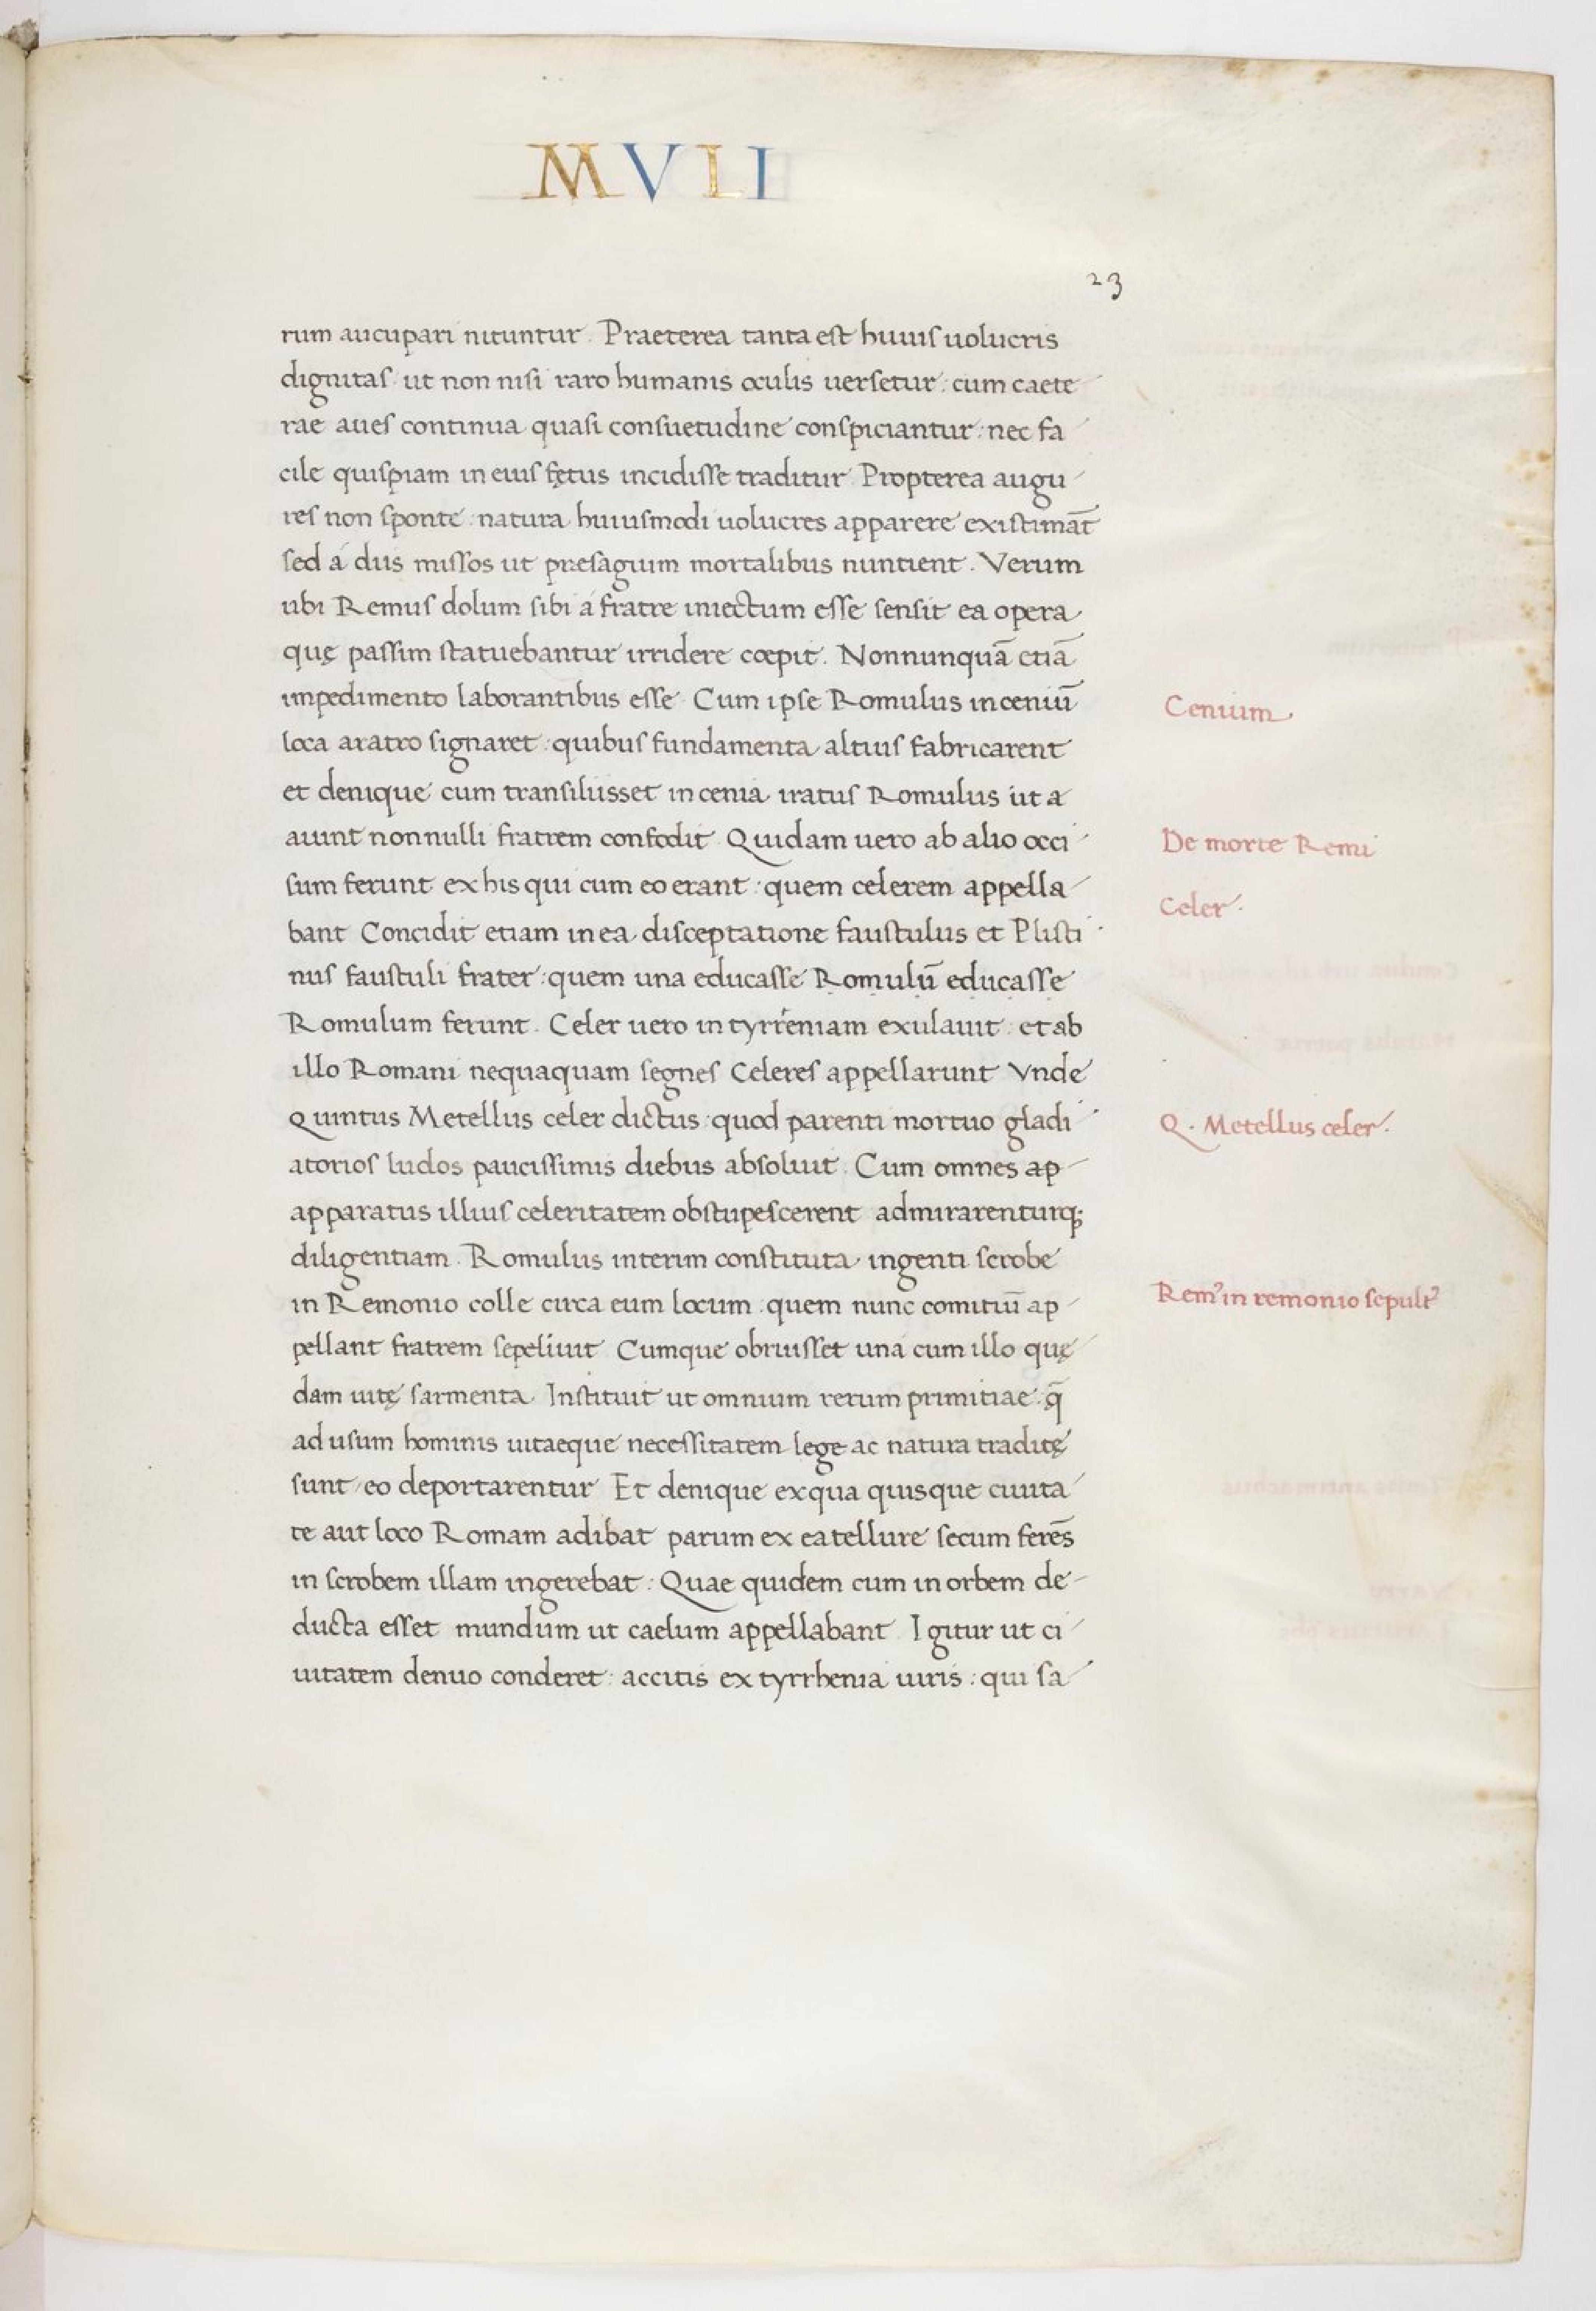 MVLI
23
rum aucupari nituntur. Praeterea tanta est huius uolucris
dignitas ut non nisi raro humanis oculis uersetur: cum caete
rae aues continua quasi consuetudine conspiciantur: nec fa
cile quispiam in eius fętus incidisse traditur. Propterea augu
res non sponte natura huiusmodi uolucres apparere existimāt
sed á diis missos ut presagium mortalibus nuntient. Verum
ubi Remus dolum sibi á fratre iniectum esse sensit ea opera
quę passim statuebantur irridere cœpit. Nonnunquā etiā
impedimento laborantibus esse. Cum ipse Romulus in ceniū
loca aratro signaret: quibus fundamenta altius fabricarent
et denique cum transiliisset in cenia iratus Romulus ut a
aiunt nonnulli fratrem confodit. Quidam uero ab alio occi
sum ferunt ex his qui cum eo erant: quem celerem appella
bant. Concidit etiam in ea disceptatione faustulus et Plisti
nus faustuli frater: quem una educasse Romulū educasse
Romulum ferunt. Celer uero in tyrreniam exulauit: et ab
illo Romani nequaquam segnes Celeres appellarunt. Vnde
Quintus Metellus celer dictus: quod parenti mortuo gladi
atorios ludos paucissimis diebus absoluit. Cum omnes ap
apparatus illius celeritatem obstupescerent admirarenturq;
diligentiam. Romulus interim constituta ingenti scrobe
in Remonio colle circa eum locum: quem nunc comitiū ap
pellant fratrem sepeliuit. Cumque obruisset una cum illo quę
dam uitę sarmenta. Instituit ut omnium rerum primitiae: q̄
ad usum hominis uitaeque necessitatem lege ac natura traditę
sunt eo deportarentur. Et denique ex qua quisque ciuita
te aut loco Romam adibat parum ex ea tellure secum ferēs
in scrobem illam ingerebat: Quae quidem cum in orbem de
ducta esset mundum ut caelum appellabant. Igitur ut ci
uitatem denuo conderet: accitis ex tyrrhenia uiris: qui sa
Cenium
De morte Remi
Celer.
Q. Metellus celer.
Rem⁹ in remonio sepult⁹